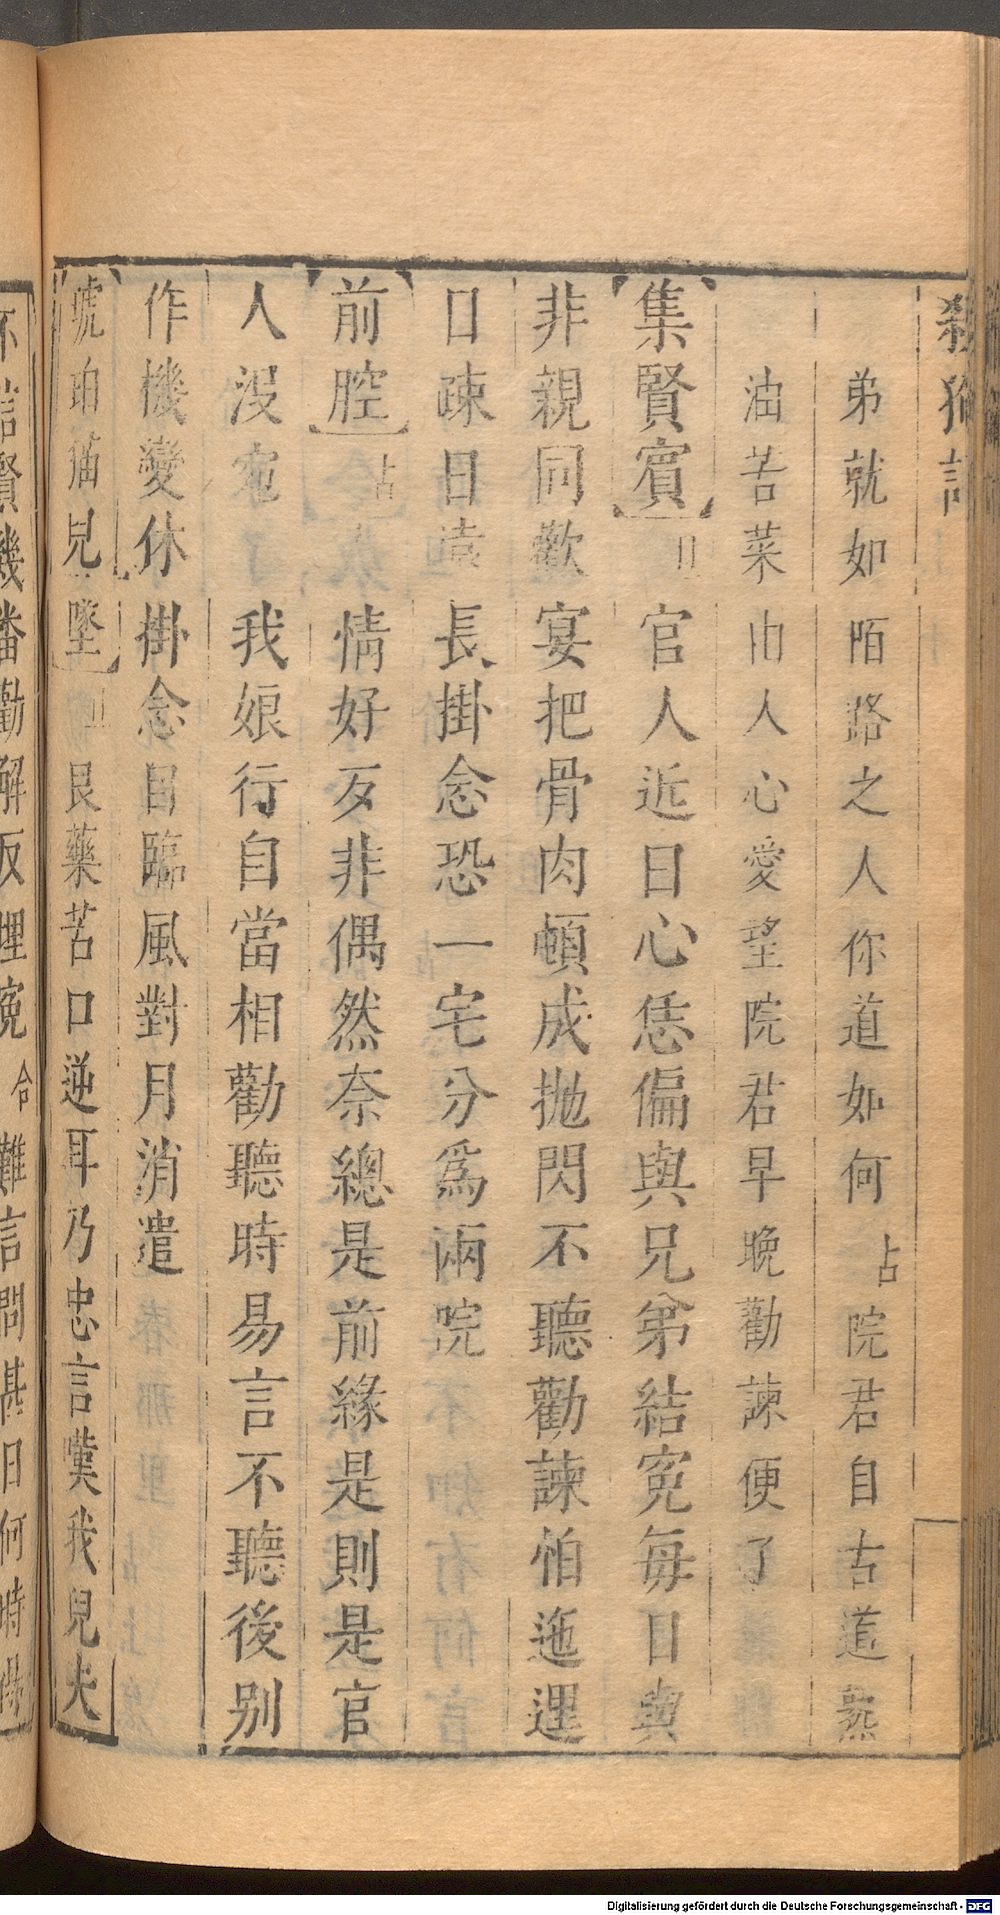 殺狗記
弟就如陌路之人你道如何占院君自古道熬
油苦菜由人心愛望院君早晚勸諫便了
集賢賓丑官人近日心恁偏與兄弟結寃每日與
非親同歡宴把骨肉頓成抛閃不聽勸諫怕迤逗
口疎日遠長掛念恐一宅分爲兩院
前腔占情好反非偶然奈總是前緣是則是官
人沒宛我娘行自當相勸聽時易言不聽後别
作機變休掛念目臨風對月消遣
琥珀猫兒墜丑良藥苦口逆耳乃忠言嘆我兒夫
不信賢幾番勸解反埋寃合難言問甚日何時
Digitalisierung gefördert durch die Deutsche Forschungsgemeinschaft - DFG